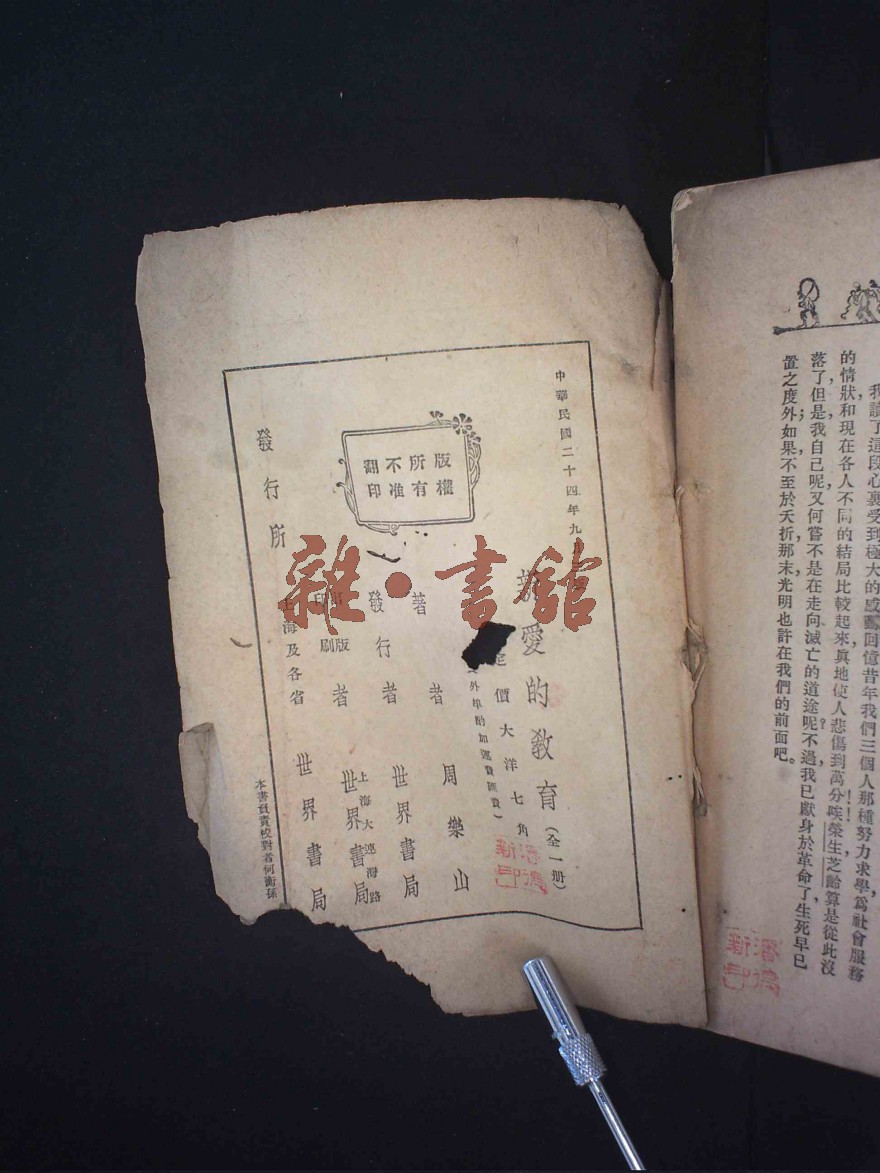 我讀了這段心裏受到極大的感動回憶昔年我們三個人那種努力求學爲社會服務，
的情狀和現在各人不同的結局比較起來眞地使人悲傷到萬分唉榮生芝齡算是從此沒
落了但是我自己呢又何嘗不是在走向滅亡的道途呢不過我已獻身於革命了生死早已
置之度外如果不至於夭折那末光明也許在我們的前面吧。
中華民國二十四年九
愛的教育（全一册）
定價大洋七角
（外埠酌加運費匯費）
版權所有
不准翻印
著者 周樂山
發行者 世界書局
出版印刷者 上海大連灣路 世界書局
發行所 上海及各省 世界書局
本書負責校對者何衡孫
雜·書館